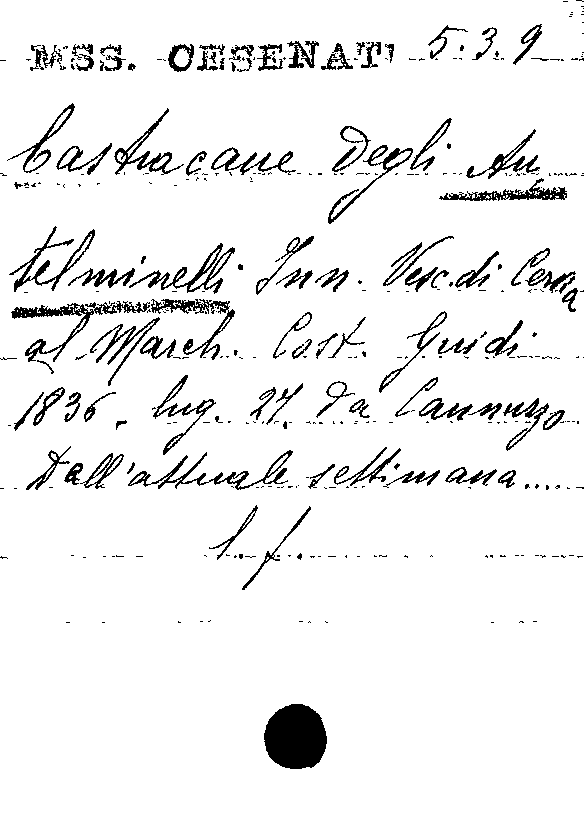 MSS. CESENATI 5.3.9
Castracane Degli An
telminelli Inn. Vesc. di Cesena
al March. Cost. Guidi
1836. lug. 27. da Cannuzzo
Dall'attuale settimana....
l. f.